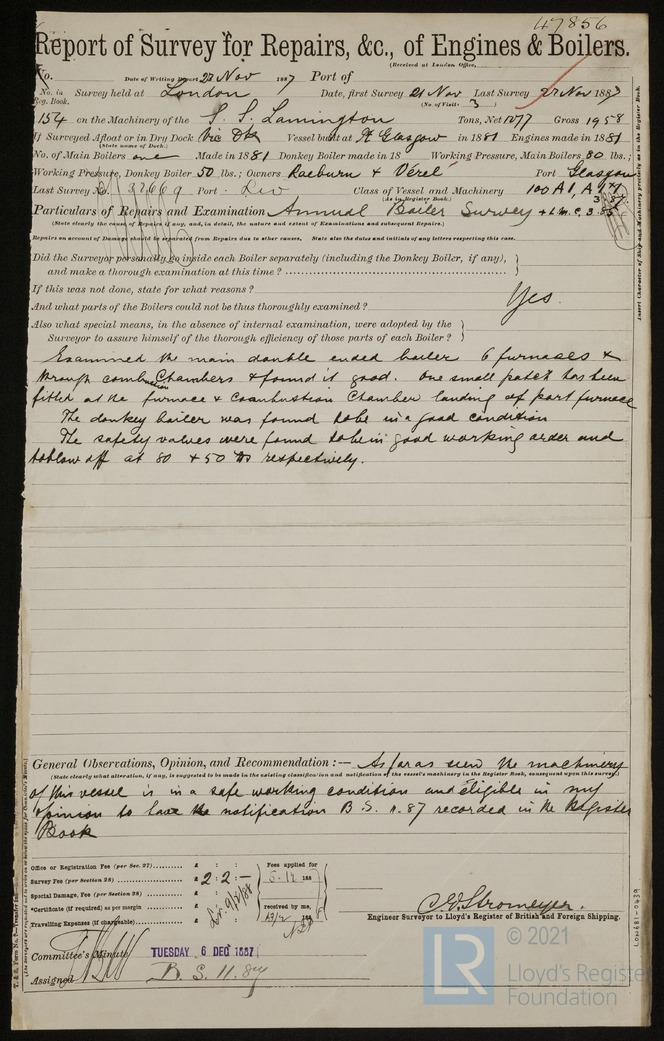 47856
Report of Survey for Repairs, &c., of Engines & Boilers.
(Received at London Office,
No. Date of Writing Report 23 Nov 1887 Port of
No. in Reg. Book. Survey held at London Date, first Survey 21 Nov Last Survey 22 Nov 1887
(No. of Visits 3 )
154 on the Machinery of the S. S. Lamington Tons, Net 1277 Gross 1958
If Surveyed Afloat or in Dry Dock Vic Dk Vessel built at Pt Glasgow in 1881 Engines made in 1881
(State name of Dock.)
No. of Main Boilers one Made in 1881 Donkey Boiler made in 18 Working Pressure, Main Boilers 80 lbs.;
Working Pressure, Donkey Boiler 50 lbs.; Owners Raeburn & Vérel Port Glasgow
Last Survey No. 37669 Port Liv Class of Vessel and Machinery 100 A1,
(As in Register Book.)
Particulars of Repairs and Examination Annual Boiler Survey + L.M.C. 3.85
(State clearly the cause of Repairs if any, and, in detail, the nature and extent of Examinations and subsequent Repairs.)
Repairs on account of Damage should be separated from Repairs due to other causes. State also the dates and initials of any letters respecting this case.
Did the Surveyor personally go inside each Boiler separately (including the Donkey Boiler, if any),
and make a thorough examination at this time?
If this was not done, state for what reasons?
Yes.
And what parts of the Boilers could not be thus thoroughly examined?
Also what special means, in the absence of internal examination, were adopted by the
Surveyor to assure himself of the thorough efficiency of those parts of each Boiler?
Examined the main double ended boiler 6 furnaces &
through combustion Chambers & found it good. One small patch has been
fitted at the furnace & Combustion Chamber landing of port furnace
The donkey boiler was found to be in a good condition
The safety valves were found to be in good working order and
to blow off at 80 & 50 lbs respectively.
General Observations, Opinion, and Recommendation :— As far as seen the machinery
(State clearly what alteration, if any, is suggested to be made in the existing classification and notification of the vessel's machinery in the Register Book, consequent upon this survey.)
of this vessel is in a safe working condition and eligible in my
opinion to have the notification B S 11.87 recorded in the Register
Book
Office or Registration Fee (per Sec. 27) £ : : Fees applied for
Survey Fee (per Section 28) £ 2 : 2 : – 5.12 188
Special Damage, Fee (per Section 28) £ : :
*Certificate (if required) as per margin £ : : received by me,
Travelling Expenses (if chargeable) £ : : 188
C. E. Stromeyer.
Engineer Surveyor to Lloyd's Register of British and Foreign Shipping.
Committee's Minute TUESDAY 6 DEC 1887
Assigned B. S. 11.87
Insert Character of Ship and Machinery precisely as in the Register Book.
LON681-0439
LR
© 2021
Lloyd's Register
Foundation